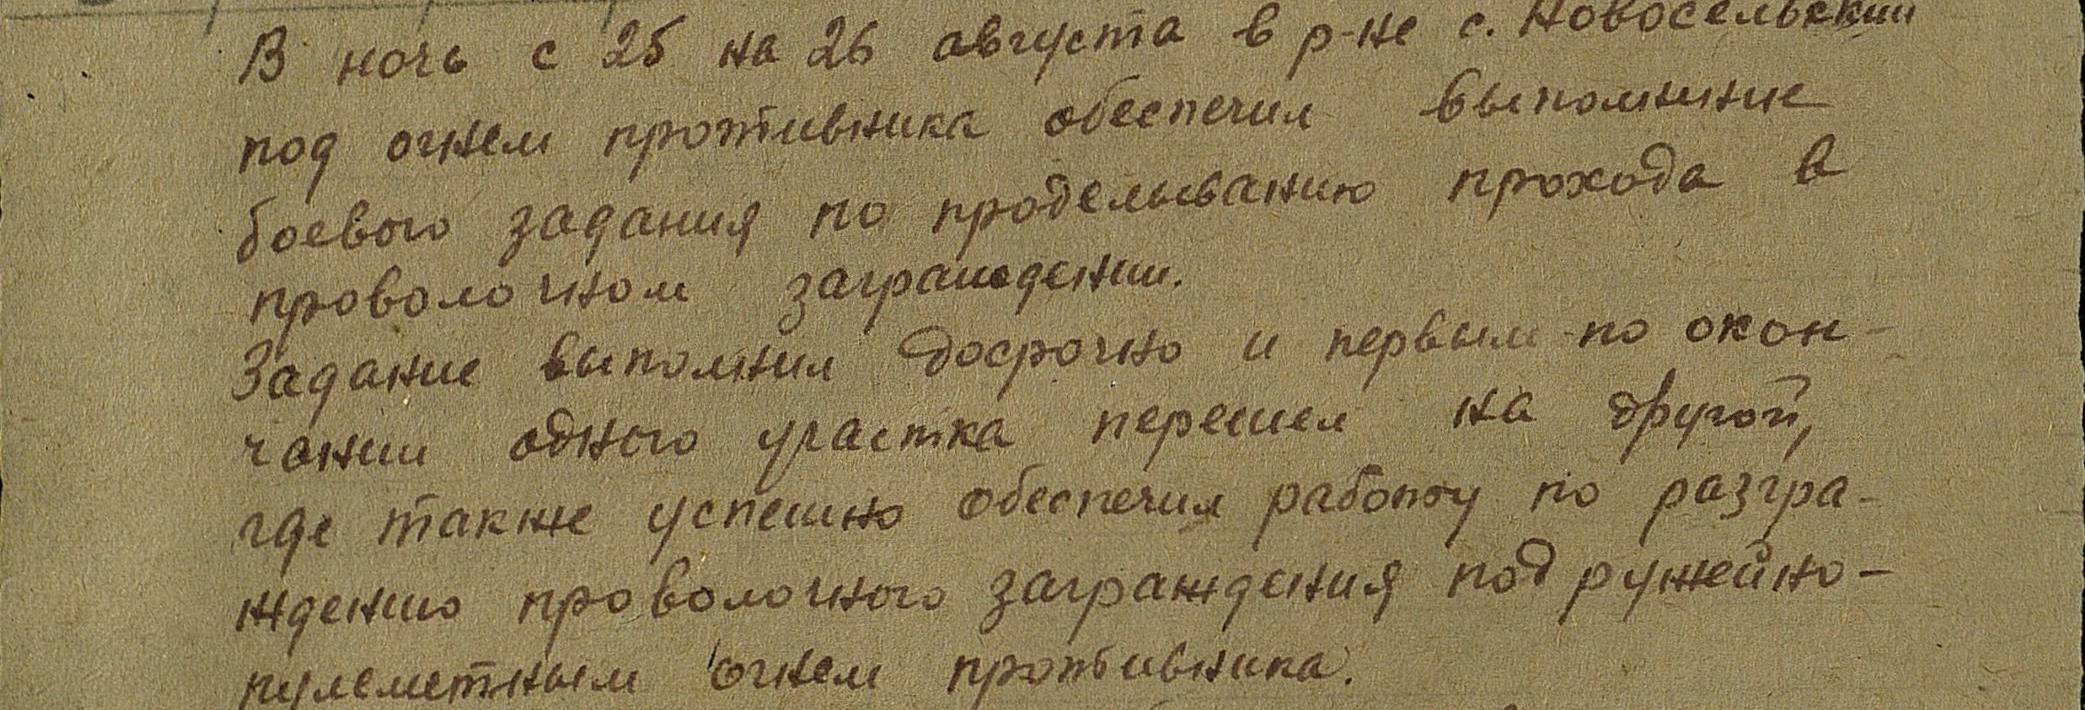 В ночь с 25 на 26 августа в р-не с. Новосельский
под огнем противника обеспечил выполнение
боевого задания по проделыванию прохода в
проволочном заграждении.
Задание выполнил досрочно и первым по окон-
чании одного участка перешел на другой,
где также успешно обеспечил работу по разгра-
ждению проволочного заграждения под ружейно-
пулеметным огнем противника.